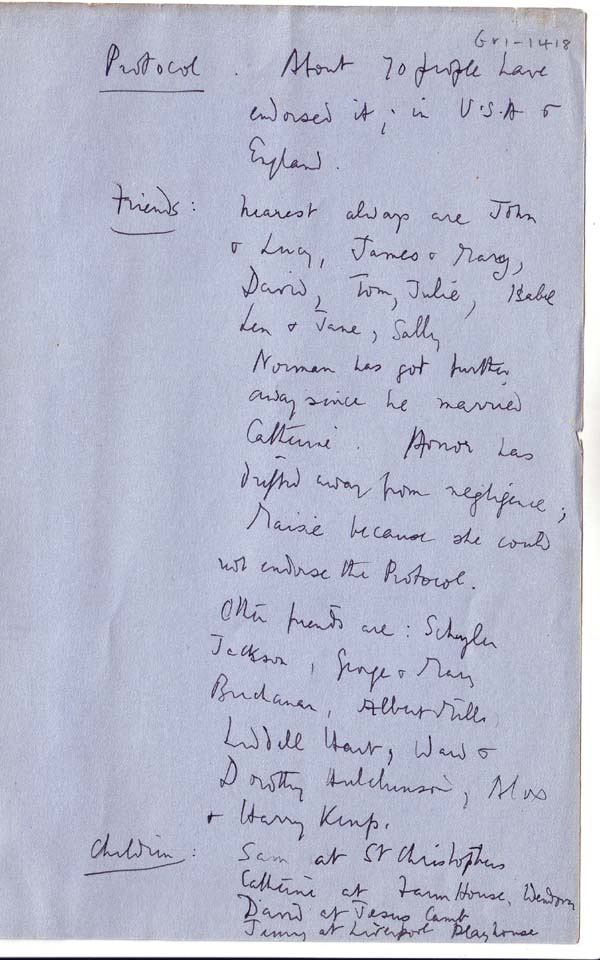 Gr1-1418
Protocol . About 70 people have
endorsed it; in U.S.A &
England.
Friends: nearest always are John
& Lucy, James & Mary,
David, Tom, Julie, Isabel
Len & Jane, Sally
Norman has got further
away since he married
Catherine. Honor has
drifted away from negligence;
Maisie because she could
not endorse the Protocol.
Other friends are: Schuyler
Jackson, George & Mary
Buchanan, Albert Mills,
Liddell Hart, Ward &
Dorothy Hutchinson, Alix
& Harry Kemp.
Children: Sam at St Christophers
Catherine at Farm House, Wendover
David at Jesus Camb
Jenny at Liverpool Playhouse